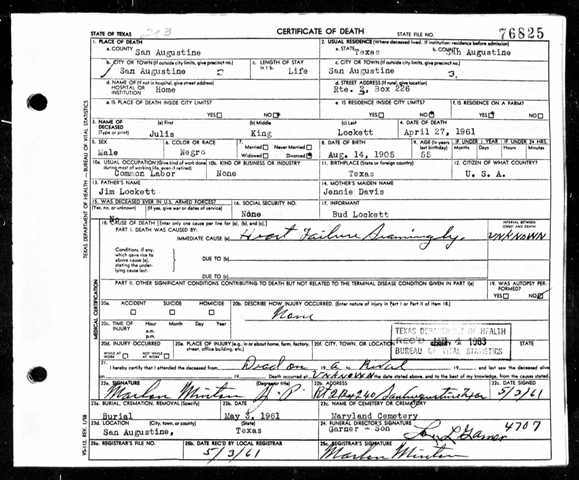 STATE OF TEXAS
CERTIFICATE OF DEATH
STATE FILE NO. 76825
1. PLACE OF DEATH
a. COUNTY San Augustine
2. USUAL RESIDENCE (Where deceased lived. If institution: residence before admission)
a. STATE Texas
b. COUNTY San Augustine
b. CITY OR TOWN (If outside city limits, give precinct no.) San Augustine
c. LENGTH OF STAY in 1 b. Life
c. CITY OR TOWN (If outside city limits, give precinct no.) San Augustine
d. NAME OF (If not in hospital, give street address) HOSPITAL OR INSTITUTION Home
d. STREET ADDRESS (If rural, give location) Rte. 2, Box 226
e. IS PLACE OF DEATH INSIDE CITY LIMITS? YES NO
e. IS RESIDENCE INSIDE CITY LIMITS? YES NO
f. IS RESIDENCE ON A FARM? YES NO
3. NAME OF DECEASED (Type or print)
(a) First Julis
(b) Middle King
(c) Last Lockett
4. DATE OF DEATH April 27, 1961
5. SEX Male
6. COLOR OR RACE Negro
7. Married Never Married Widowed Divorced
8. DATE OF BIRTH Aug. 14, 1905
9. AGE (In years last birthday) 55
IF UNDER 1 YEAR Months Days
IF UNDER 24 HRS. Hours Min.
10a. USUAL OCCUPATION (Give kind of work done during most of working life, even if retired) Common Labor
10b. KIND OF BUSINESS OR INDUSTRY None
11. BIRTHPLACE (State or foreign country) Texas
12. CITIZEN OF WHAT COUNTRY? U. S. A.
13. FATHER'S NAME Jim Lockett
14. MOTHER'S MAIDEN NAME Davis
15. WAS DECEASED EVER IN U.S. ARMED FORCES? (Yes, no, or unknown) (If yes, give war or dates of service) No
16. SOCIAL SECURITY NO. None
17. INFORMANT Bud Lockett
18. CAUSE OF DEATH [Enter only one cause per line for (a), (b), and (c).]
INTERVAL BETWEEN ONSET AND DEATH
PART I. DEATH WAS CAUSED BY:
IMMEDIATE CAUSE (a) Heart Failure Seamingly. UNKNOWN
Conditions, if any, which gave rise to above cause (a), stating the underlying cause last.
DUE TO (b)
DUE TO (c)
PART II. OTHER SIGNIFICANT CONDITIONS CONTRIBUTING TO DEATH BUT NOT RELATED TO THE TERMINAL DISEASE CONDITION GIVEN IN PART I(a)
19. WAS AUTOPSY PERFORMED? YES NO
20a. ACCIDENT SUICIDE HOMICIDE
20b. DESCRIBE HOW INJURY OCCURRED. (Enter nature of injury in Part I or Part II of item 18.)
None
20c. TIME OF INJURY Hour Month Day Year
a.m.
p.m.
TEXAS DEPARTMENT OF HEALTH
REC'D 1963
BUREAU OF VITAL STATISTICS
20d. INJURY OCCURRED WHILE AT WORK NOT WHILE AT WORK
20e. PLACE OF INJURY (e.g., in or about home, farm, factory, street, office building, etc.)
20f. CITY, TOWN, OR LOCATION COUNTY STATE
21. I hereby certify that I attended the deceased from Dead on a
Death occurred at UNKNOWN on the date stated above, and to the best of my knowledge, from the causes stated.
22a. SIGNATURE Marlon Minton J. P.
(Degree or title)
22b. ADDRESS San Augustine
22c. DATE SIGNED 5/3/61
23a. BURIAL, CREMATION, REMOVAL (Specify) Burial
23b. DATE May 3, 1961
23c. NAME OF CEMETERY OR CREMATORY Maryland Cemetery
23d. LOCATION (City, town, or county) (State) San Augustine, Texas
24. FUNERAL DIRECTOR'S SIGNATURE Garner - Son 4707
25a. REGISTRAR'S FILE NO.
25b. DATE REC'D BY LOCAL REGISTRAR 5/3/61
25c. REGISTRAR'S SIGNATURE Marlon Minton
TEXAS DEPARTMENT OF HEALTH—BUREAU OF VITAL STATISTICS
MEDICAL CERTIFICATION